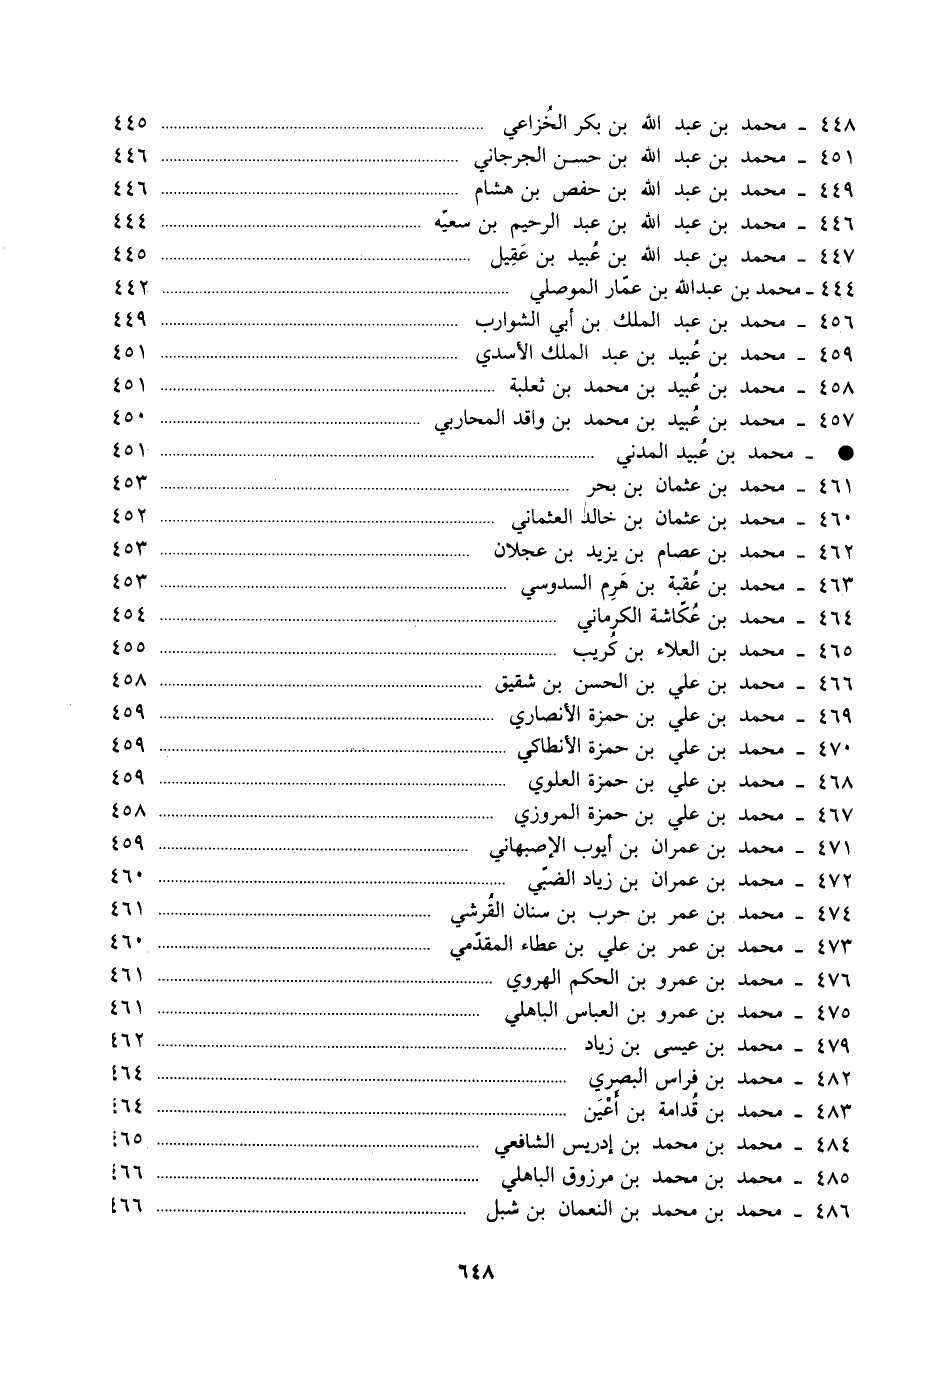 ٤٤٨ - محمد بن عبد الله بن بكر الخُزاعي ........ ٤٤٥
٤٥١ - محمد بن عبد الله بن حسن الجرجاني ........ ٤٤٦
٤٤٩ - محمد بن عبد الله بن حفص بن هشام ........ ٤٤٦
٤٤٦ - محمد بن عبد الله بن عبد الرحيم بن سعيّه ........ ٤٤٤
٤٤٧ - محمد بن عبد الله بن عُبيد بن عَقِيل ........ ٤٤٥
٤٤٤ - محمد بن عبدالله بن عمّار الموصلي ........ ٤٤٢
٤٥٦ - محمد بن عبد الملك بن أبي الشوارب ........ ٤٤٩
٤٥٩ - محمد بن عُبيد بن عبد الملك الأسدي ........ ٤٥١
٤٥٨ - محمد بن عُبيد بن محمد بن ثعلبة ........ ٤٥١
٤٥٧ - محمد بن عُبيد بن محمد بن واقد المحاربي ........ ٤٥٠
● - محمد بن عُبيد المدني ........ ٤٥١
٤٦١ - محمد بن عثمان بن بحر ........ ٤٥٣
٤٦٠ - محمد بن عثمان بن خالد العثماني ........ ٤٥٢
٤٦٢ - محمد بن عصام بن يزيد بن عجلان ........ ٤٥٣
٤٦٣ - محمد بن عُقبة بن هَرِم السدوسي ........ ٤٥٣
٤٦٤ - محمد بن عُكّاشة الكرماني ........ ٤٥٤
٤٦٥ - محمد بن العلاء بن كُريب ........ ٤٥٥
٤٦٦ - محمد بن علي بن الحسن بن شقيق ........ ٤٥٨
٤٦٩ - محمد بن علي بن حمزة الأنصاري ........ ٤٥٩
٤٧٠ - محمد بن علي بن حمزة الأنطاكي ........ ٤٥٩
٤٦٨ - محمد بن علي بن حمزة العلوي ........ ٤٥٩
٤٦٧ - محمد بن علي بن حمزة المروزي ........ ٤٥٨
٤٧١ - محمد بن عمران بن أيوب الإصبهاني ........ ٤٥٩
٤٧٢ - محمد بن عمران بن زياد الضبّي ........ ٤٦٠
٤٧٤ - محمد بن عمر بن حرب بن سنان القُرشي ........ ٤٦١
٤٧٣ - محمد بن عمر بن علي بن عطاء المقدّمي ........ ٤٦٠
٤٧٦ - محمد بن عمرو بن الحكم الهروي ........ ٤٦١
٤٧٥ - محمد بن عمرو بن العباس الباهلي ........ ٤٦١
٤٧٩ - محمد بن عيسى بن زياد ........ ٤٦٢
٤٨٢ - محمد بن فراس البصري ........ ٤٦٤
٤٨٣ - محمد بن قُدامة بن أَعْيَن ........ ٤٦٤
٤٨٤ - محمد بن محمد بن إدريس الشافعي ........ ٤٦٥
٤٨٥ - محمد بن محمد بن مرزوق الباهلي ........ ٤٦٦
٤٨٦ - محمد بن محمد بن النعمان بن شبل ........ ٤٦٦
٦٤٨